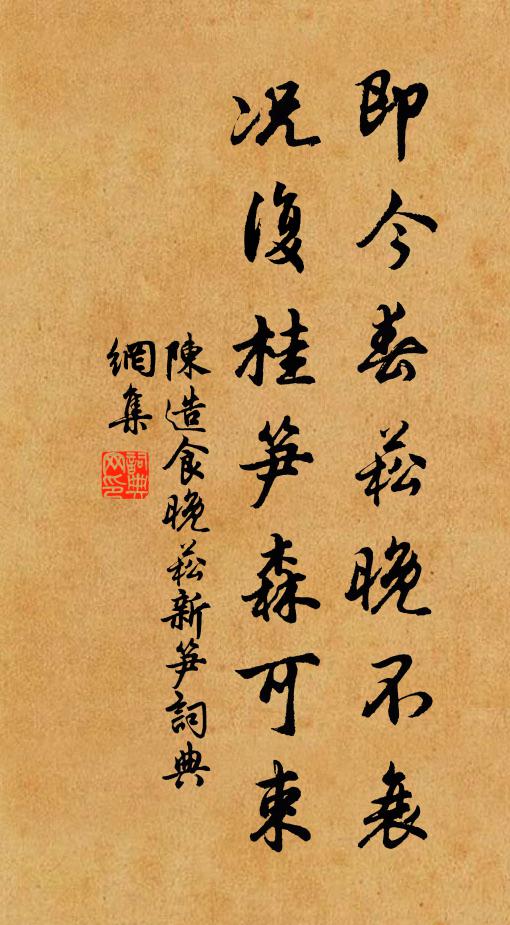 即今春菘晚不衰
况復桂笋森可束
陳造食晚菘新笋詞典
網集
詞典網印